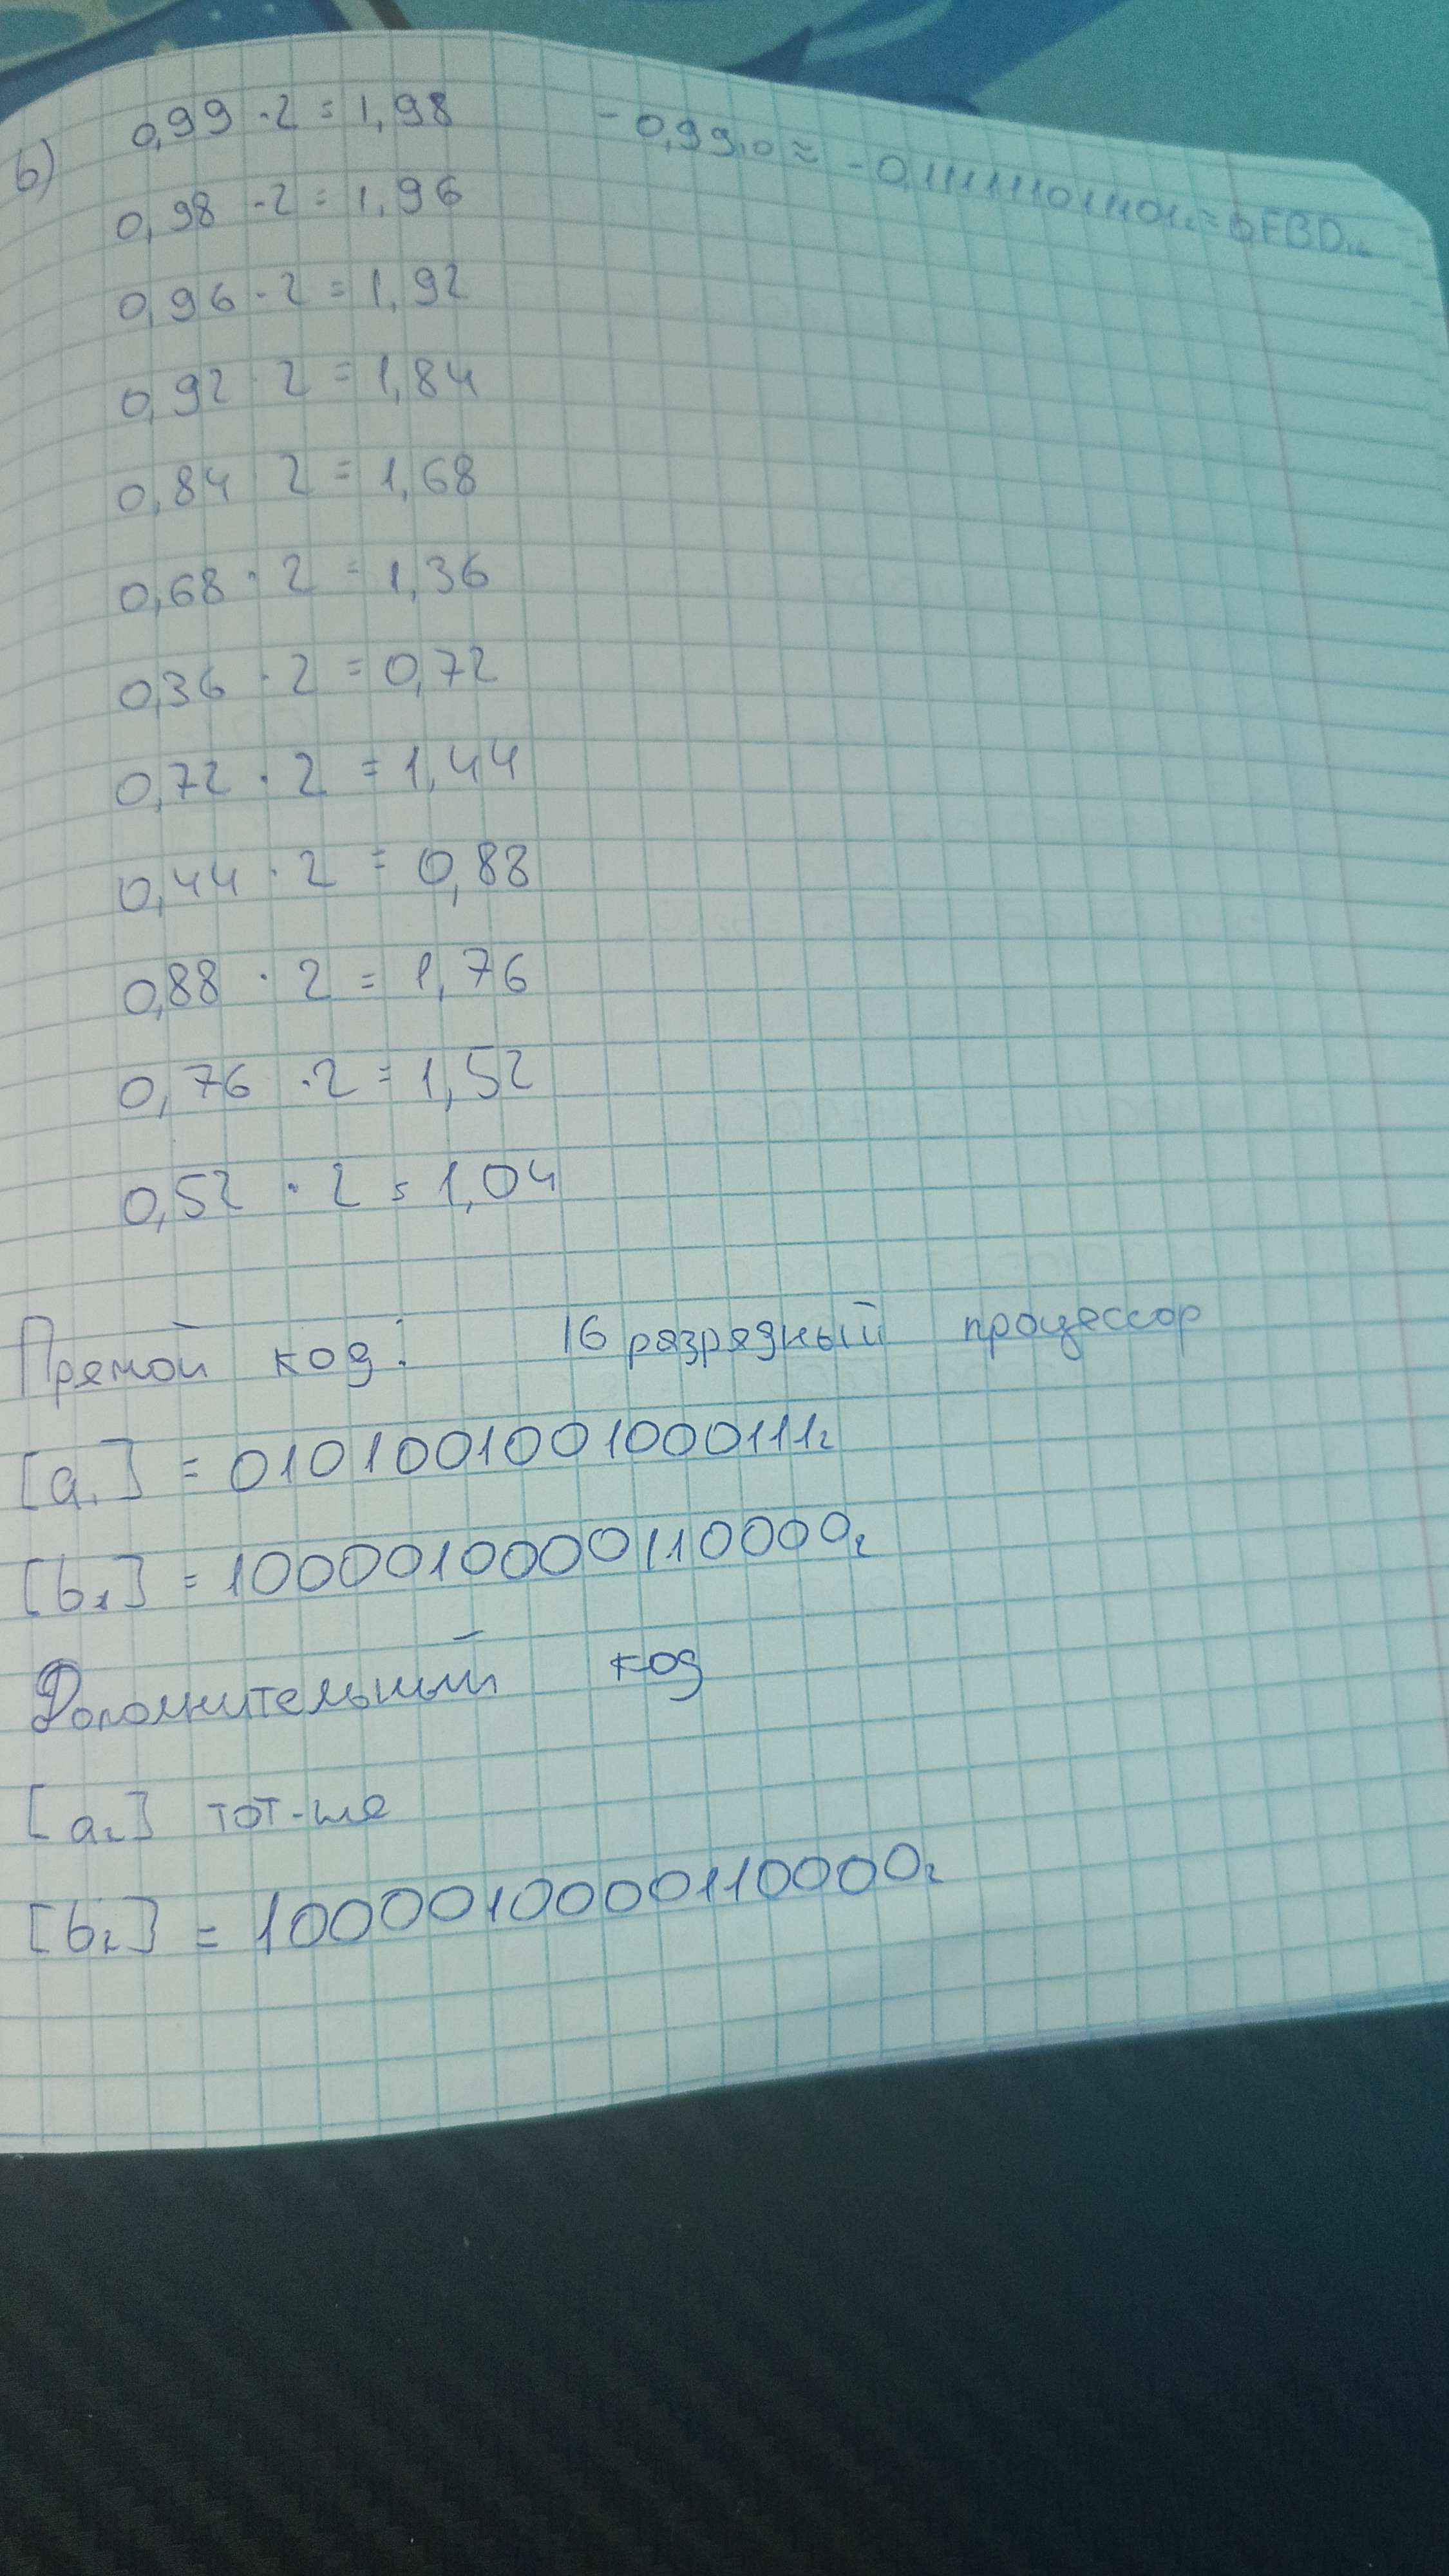 b) 0,99 · 2 = 1,98
- 0,99₁₀ ≈ - 0,111111011101₂ = 0FBD₁₆
0,98 · 2 = 1,96
0,96 · 2 = 1,92
0,92 · 2 = 1,84
0,84 · 2 = 1,68
0,68 · 2 = 1,36
0,36 · 2 = 0,72
0,72 · 2 = 1,44
0,44 · 2 = 0,88
0,88 · 2 = 1,76
0,76 · 2 = 1,52
0,52 · 2 = 1,04
Прямой код: 16 разрядный процессор
[a₁] = 0101001001000111₂
[b₁] = 1000010000110000₂
Дополнительный код
[a₂] тот-же
[b₂] = 1000010000110000₂